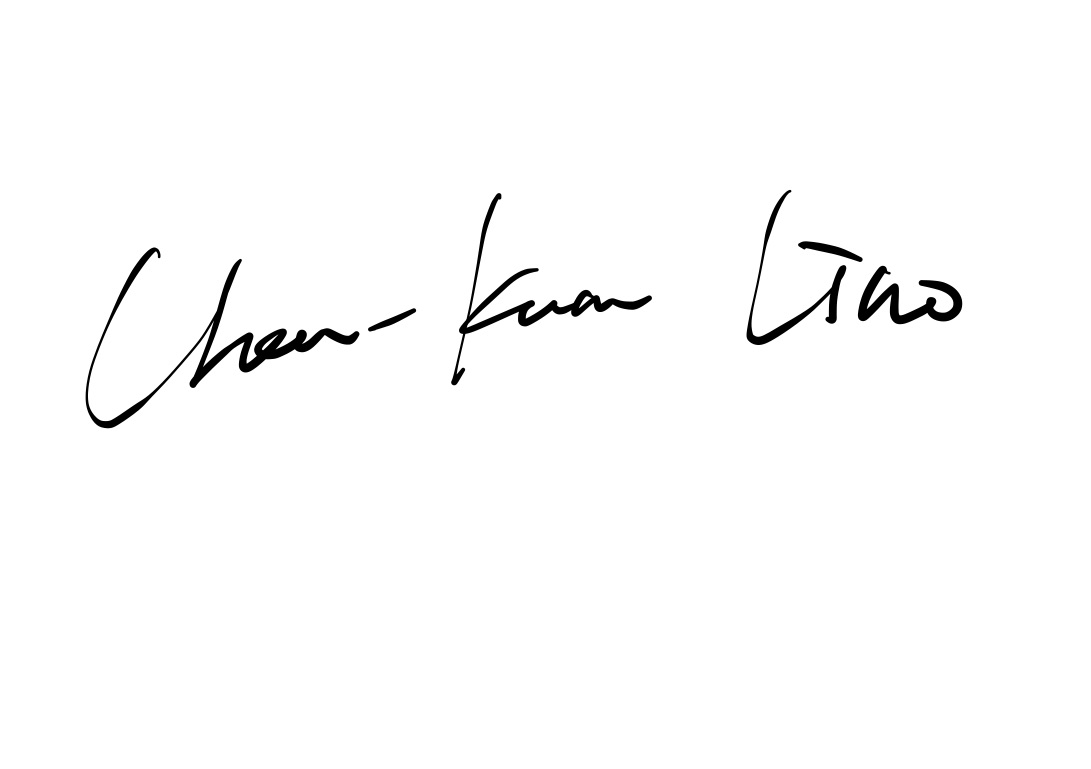 Chen-Kuan Liao